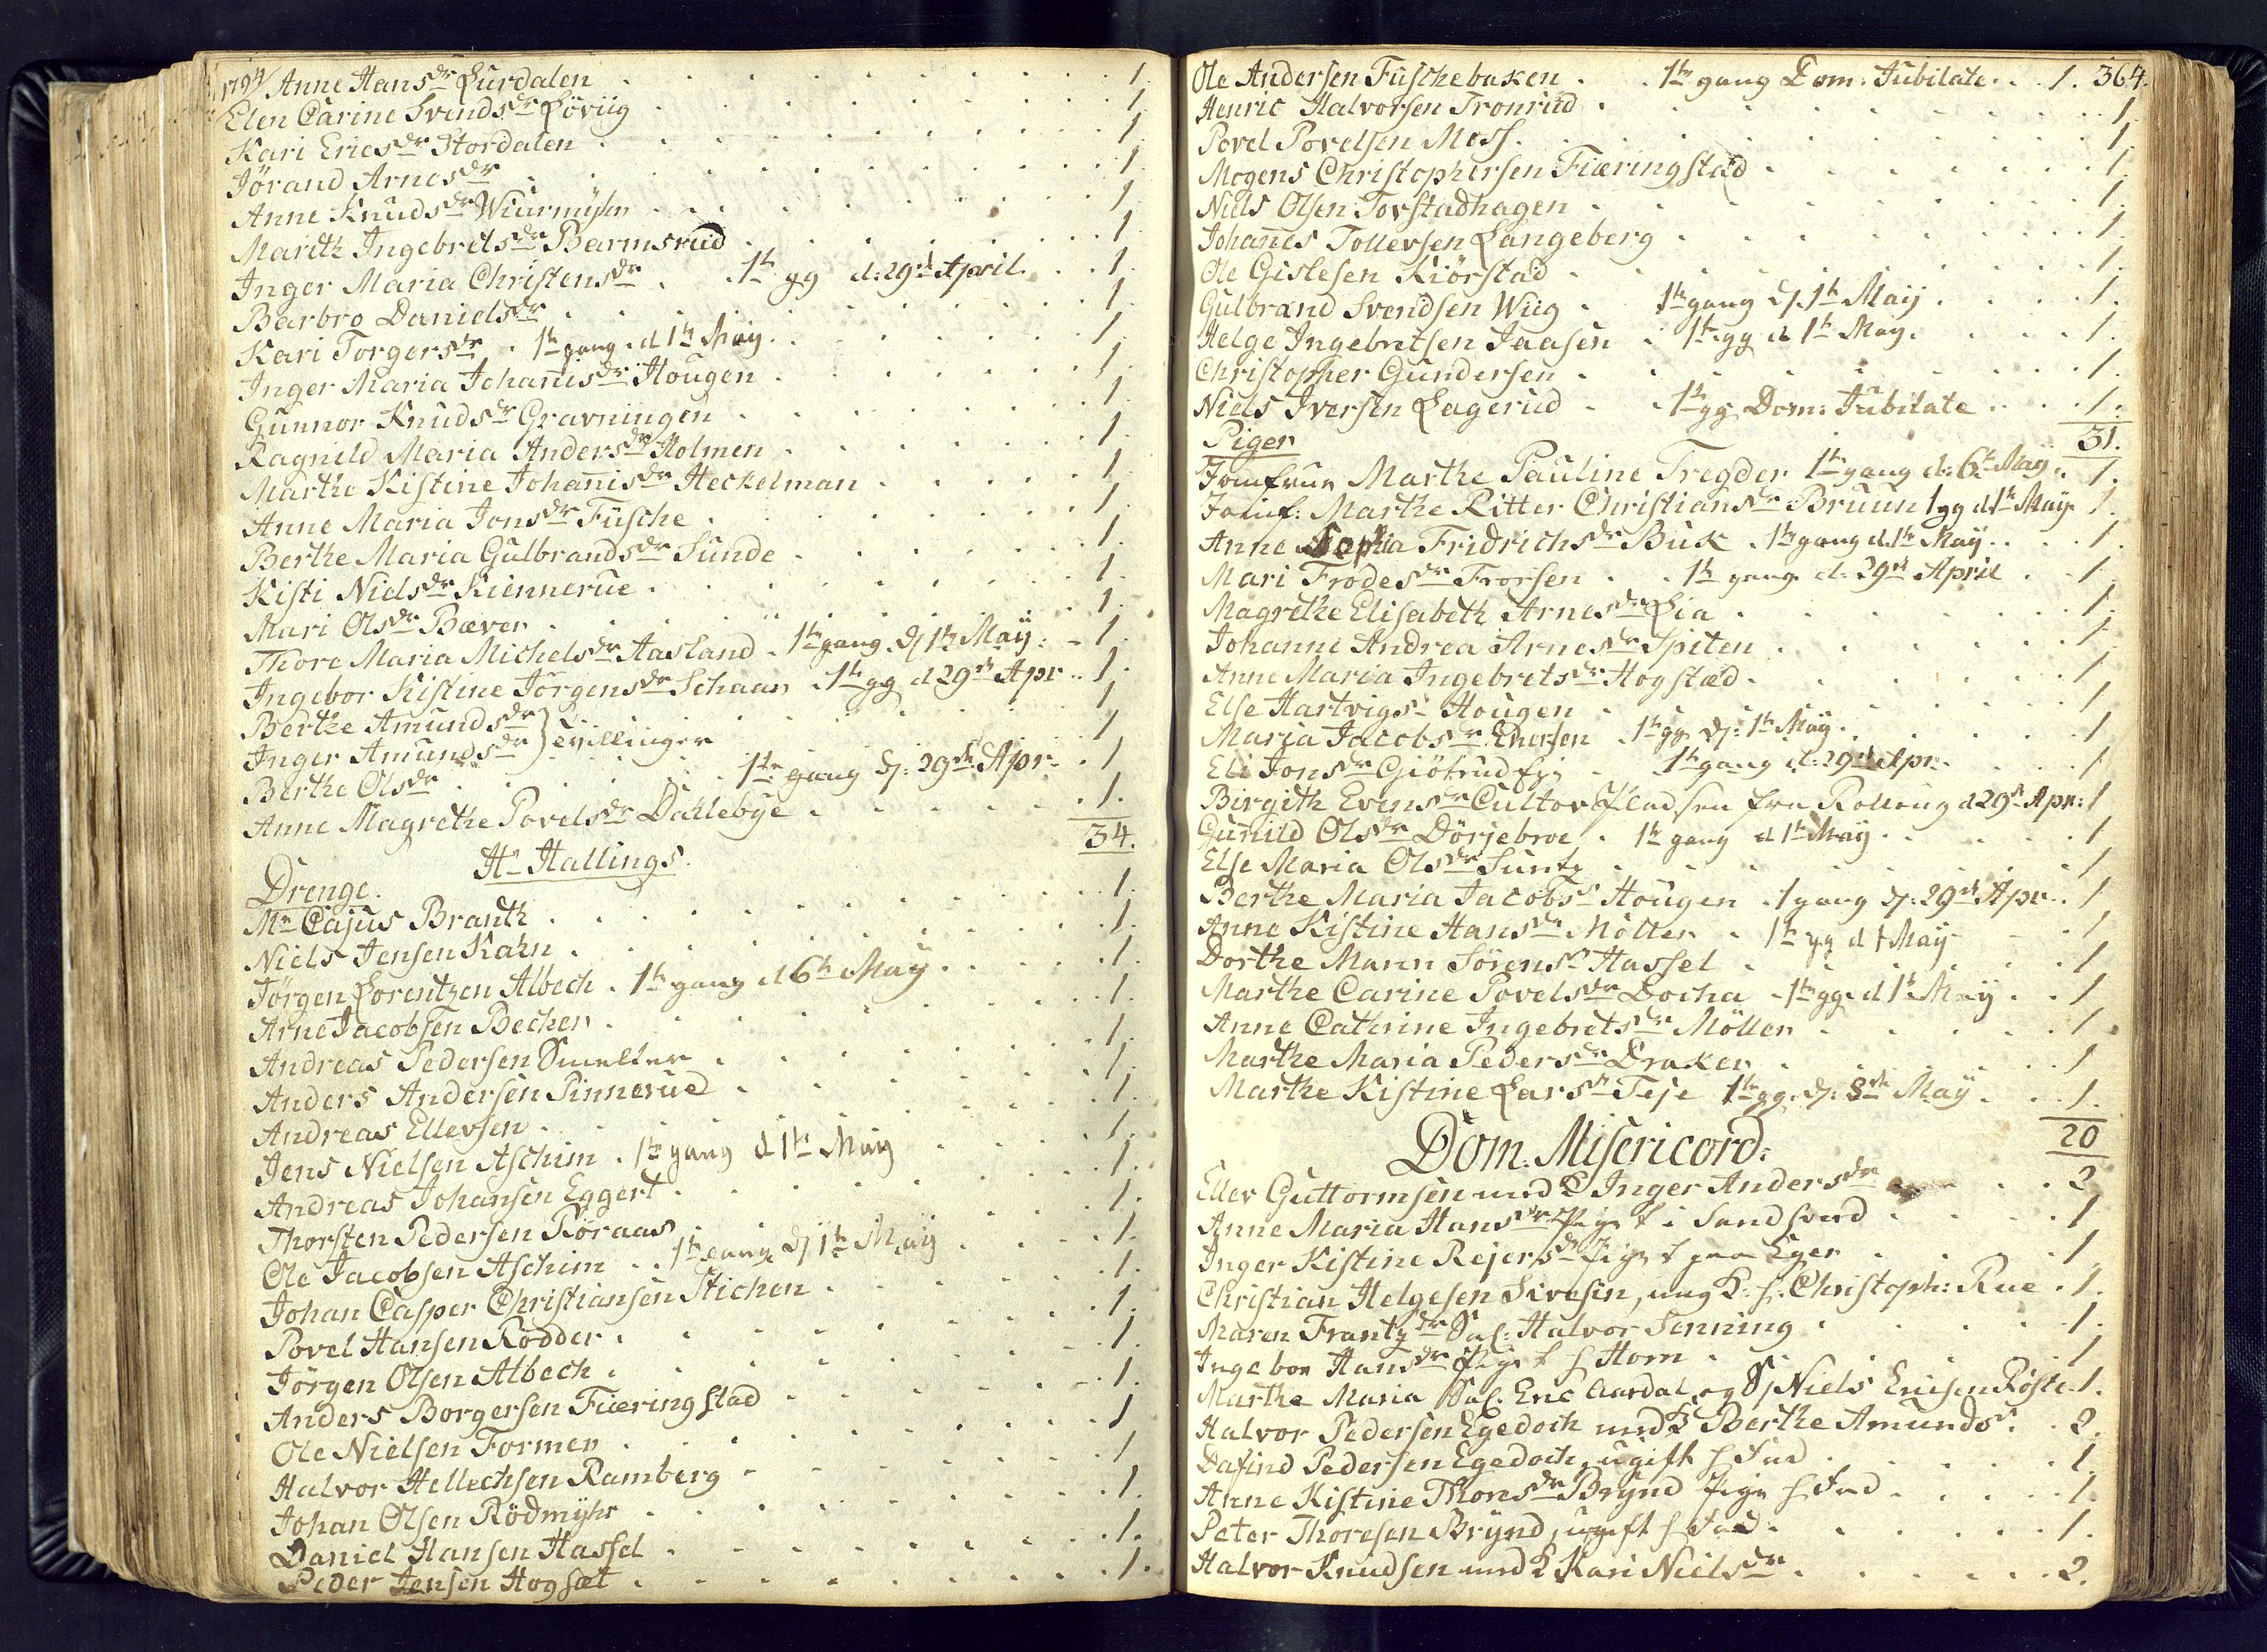 1794 Anne Hansdr Lurdalen . . . 1.
Elen Carine Svendsdr Lövüg . . . 1.
Kari Ericsdr Stordalen . . . 1
Jörand Arnesdr . . . 1.
Anne Knudsdr Wiurmyhr . . . 1
Marith Ingebretsdr Barmsrud . . . 1.
Inger Maria Christensdr . 1te gg d: 29de April . . 1.
Barbro Danielsdr . . . 1
Kari Torgersdr . 1te gang d 1te May . . . 1.
Inger Maria Johannisdr Hougen . . . 1.
Gunnor Knudsdr Gravningen . . . 1.
Ragnild Maria Andersdr Holmen . . . 1.
Marthe Kistine Johannisdr Heckelman . . . 1.
Anne Maria Jonsdr Fusche . . . 1.
Berthe Maria Gulbrandsdr Sunde . . . 1.
Kisti Nielsdr Kinnerue . . . 1.
Mari Olsdr Bæver . . . 1.
Thore Maria Michelsdr Aasland . 1te gang d 1te May: - 1.
Ingebor Kistine Jörgensdr Schaan . 1te gg d 29de Apr . . 1.
Berthe Amundsdr . . . 1
Inger Amundsdr } Tvillinger . . . 1
Berthe Olsdr . . . 1te gang d: 29de Apr. . 1
Anne Magrethe Povelsdr Dahlebye . . . 1.
34.
Hr Hallings.
Drenge.
Mr Cajus Branth . . . 1.
Niels Jensen Kahn . . . 1.
Jörgen Lorentzen Albech . 1te gang d 6te May . . . 1.
Arne Jacobsen Becher . . . 1.
Andreas Pedersen Smelter . . . 1.
Anders Andersen Pinnerud . . . 1.
Andreas Ellevsen . . . 1.
Jens Nielsen Aschim . 1te gang d 1te May . . . 1.
Andreas Johansen Eggert . . . 1.
Thorsten Pedersen Röraas . . . 1.
Ole Jacobsen Aschim . . 1te gang d 1te May . . . 1.
Johan Casper Christiansen Stichen . . . 1.
Povel Hansen Rödder . . . 1.
Jörgen Olsen Albech . . . 1.
Anders Borgersen Fiæringstad . . . 1.
Ole Nielsen Former . . . 1
Halvor Hellechsen Ramberg . . . 1
Johan Olsen Rödmyhr . . . 1.
Daniel Hansen Hassel . . . 1.
Peder Jensen Hogsæt . . . 1.
Ole Andersen Fuschebaken . . 1te gang Dom. Jubilate . . 1. 364.
Henric Halvorsen Tronrud . . . 1.
Povel Povelsen Moss . . . 1
Mogens Christophersen Fiæringstad . . . 1.
Niels Olsen Torstadhagen . . . 1.
Johannes Tollevsen Langeberg . . . 1.
Ole Gislesen Kiörstad . . . 1.
Gulbrand Svendsen Wiig . 1te gang d 1te May . . . 1.
Helge Ingebretsen Jaasen . 1te gg d 1te May . . . 1.
Christopher Gundersen . . . 1.
Niels Iversen Lagerud . . 1te gg Dom: Jubilate . . . 1.
31.
Piger
Jomfrue Marthe Pauline Tregder 1te gang d: 6te May . 1.
Jomf: Marthe Ritter Christiansdr Bruun 1 gg d 1te May 1.
Anne Sophia Fridrichsdr Buk . 1te gang d. 1te May . . . 1.
Mari Frodesdr Frorsen . . 1te gang d: 29de April . . 1.
Magrethe Elisabeth Arnesdr Lia . . . 1.
Johanne Andrea Arnesdr Spiten . . . 1.
Anne Maria Ingebretsdr Hogstæd . . . 1
Else Hartvigsr Hougen . . . 1
Maria Jacobsdr Enersen . 1te gg d: 1te May . . . 1
Eli Jonsdr Giötrud . 1te gang d: 29de Apr. . . 1
Birgith Evensdr Cultor fra Rolloug d 29de Apr: 1
Gunnild Olsdr Dörjebroe . 1te gang d 1te May . . . 1
Else Maria Olsdr Suntz . . . 1
Berthe Maria Jacobsr Hougen . 1 gang d: 29de Apr. . 1
Anne Kistine Hansdr Molter . 1te gg d 1 May - - 1
Dorthe Maria Sörensr Hassel . . . 1
Marthe Carine Povelsdr Bocha - 1te gg. d 1te May . . 1
Anne Cathrine Ingebretsdr Möller . . . 1.
Marthe Maria Pedersdr Draker . . . 1
Marthe Kistine Larsdr Teje 1te gg. d: 8de May . . 1.
20
Dom. Misericord:
Ellev Guttormsen med K Inger Andersdr . . . 2
Anne Maria Hansdr Pige t i Sandsverd . . . 1
Inger Kistine Rejersdr Pige t paa Eger . . . 1
Christian Helgesen Sivesin, ung K. h. Christoph: Rue . 1.
Maren Frantzdr Sal: Halvor Senning . . . 1.
Ingebor Hansdr Pige t h Hom . . . 1
Marthe Maria Sal: Eric Aardal, og S Niels Ericsen Röste . 1.
Halvor Pedersen Egedoch med K Berthe Amundsr . . 2.
Dafind Pedersen Egedoch, ugift h Fad . . . 1
Anne Kistine Thoresdr Brynd Pige h Fad . . . 1.
Peter Thoresen Brynd, ugift h Fad . . . 1.
Halvor Knudsen med K Kari Nielsdr . . . 2.